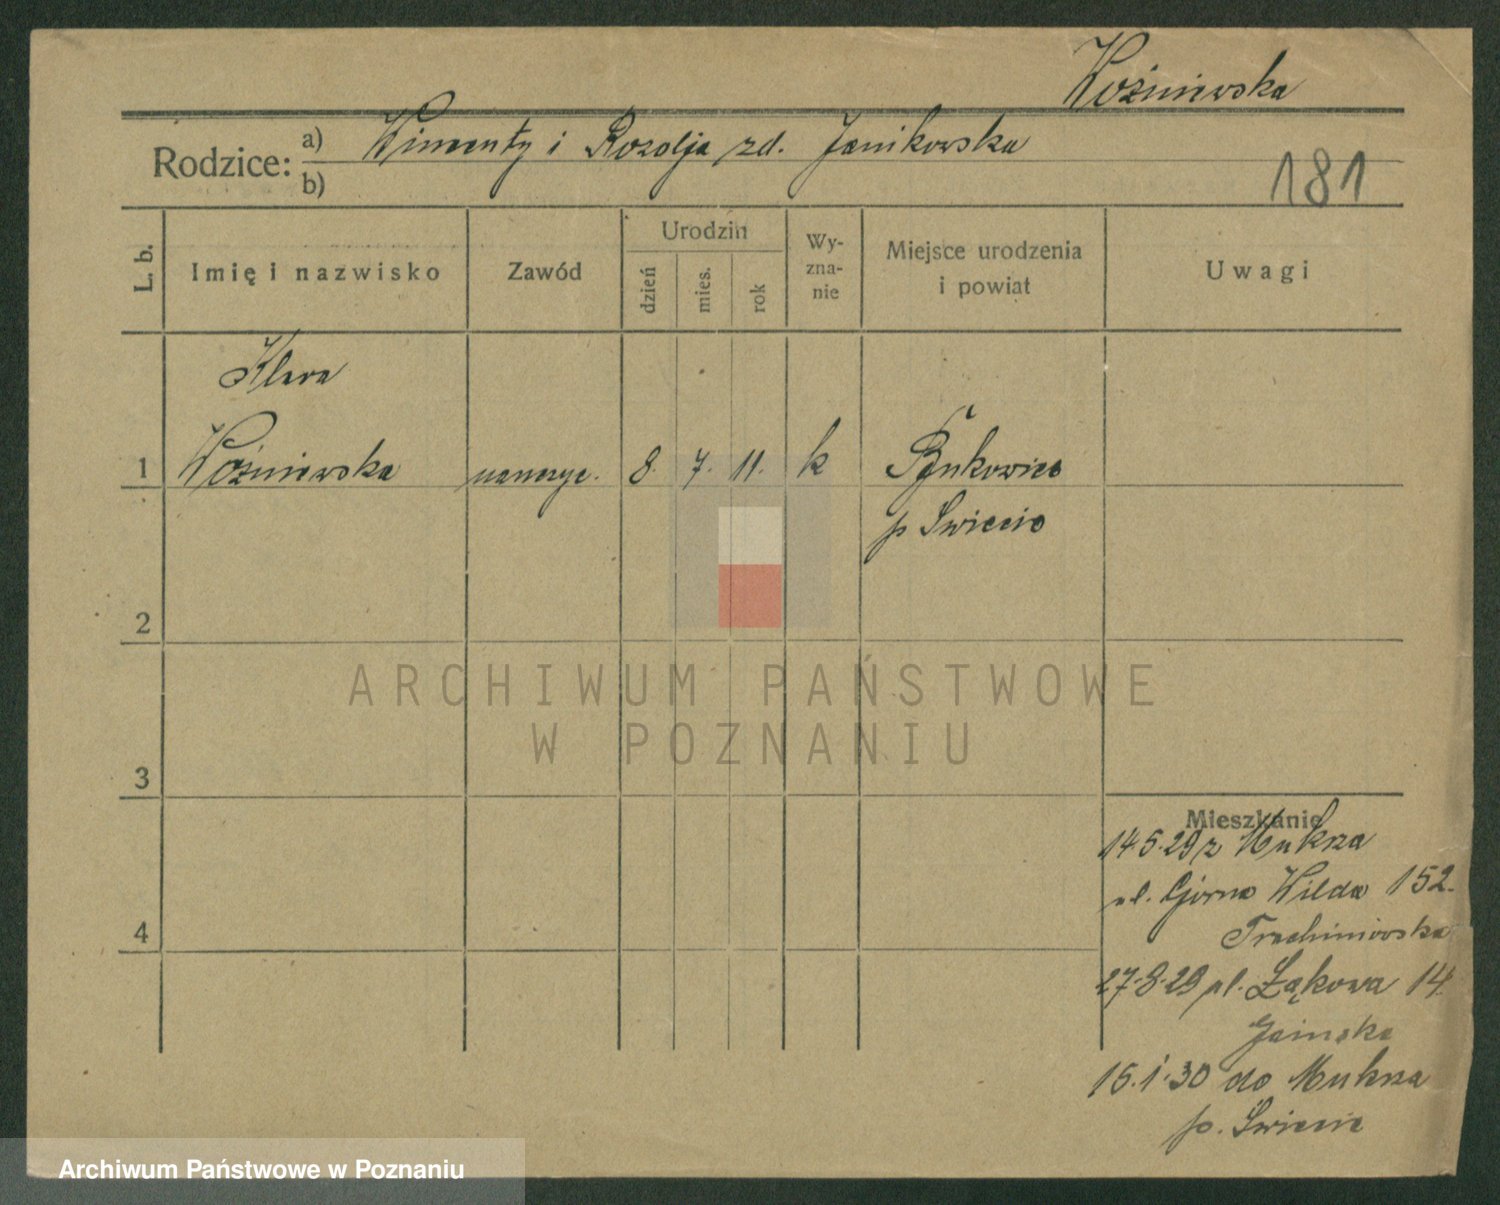 Woźniewska
Rodzice: a) Wincenty i Rozalja zd. Janikowska
b)
181
L. b.
Imię i nazwisko
Zawód
Urodzin
dzień
mies.
rok
Wy-
zna-
nie
Miejsce urodzenia
i powiat
Uwagi
Klara
1 Woźniewska nauczyc. 8. 7. 11. k Bukowiec
p Świecie
2
3
4
ARCHIWUM PAŃSTWOWE
W POZNANIU
Mieszkanie
14.5.29 z Mukrza
ul. Górna Wilda 152.
27.8.29 ul. Łąkowa 14
15.1.30 do Mukrza
p. Świecie
Archiwum Państwowe w Poznaniu